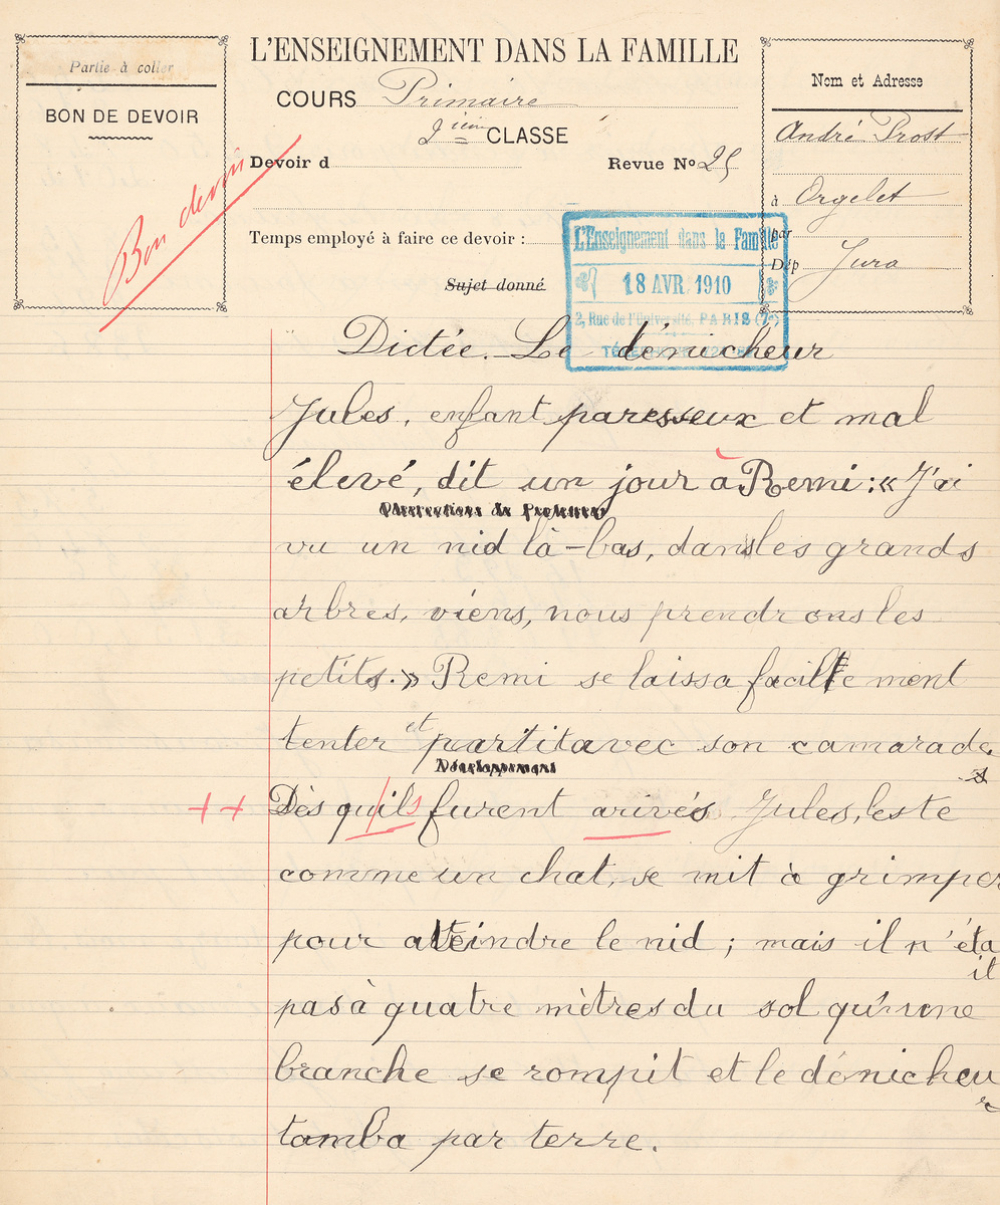 Partie à coller
BON DE DEVOIR
Bon devoir
L'ENSEIGNEMENT DANS LA FAMILLE
COURS Primaire
2ième CLASSE
Devoir d
Revue No 25
Temps employé à faire ce devoir :
Sujet donné
Nom et Adresse
André Prost
à Orgelet
par
Dép Jura
L'Enseignement dans la Famille
18 AVR. 1910
2, Rue de l'Université, PARIS (7e)
Dictée. Le dénicheur
Jules, enfant paresseux et mal
élevé, dit un jour à Remi : « J'ai
Observations du Professeur
vu un nid là-bas, dans les grands
arbres, viens, nous prendrons les
petits. » Remi se laissa facilement
tenter et partit avec son camarade.
Développement
s
++ Dès qu'ils furent arivés Jules, leste
comme un chat, se mit à grimper
pour atteindre le nid ; mais il n'éta
it
pas à quatre mètres du sol qu'une
branche se rompit et le dénicheu
r
tomba par terre.